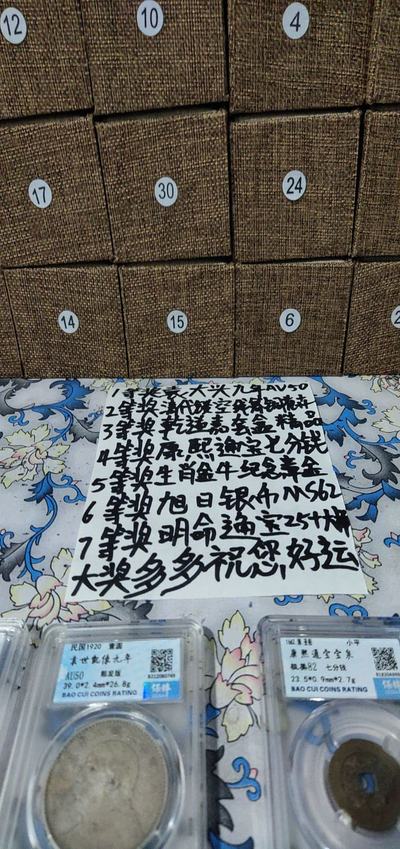 12
10
4
17
30
24
14
15
6
2
1等奖袁大头九年AU50
3等奖乾隆嘉
4等奖康熙通宝七分钱
5等奖生肖金牛纪念
6等奖旭日银币MS62
7等奖明命通宝25十大
大奖多多祝您好运
民国1920 壹圆
袁世凯像九年
AU50
39.0*2.4mm*26.8g
BAO CUI COINS RATING
小平
康熙通宝宝泉
极美82 七分钱
23.5*0.9mm*2.7g
BAO CUI COINS RATING